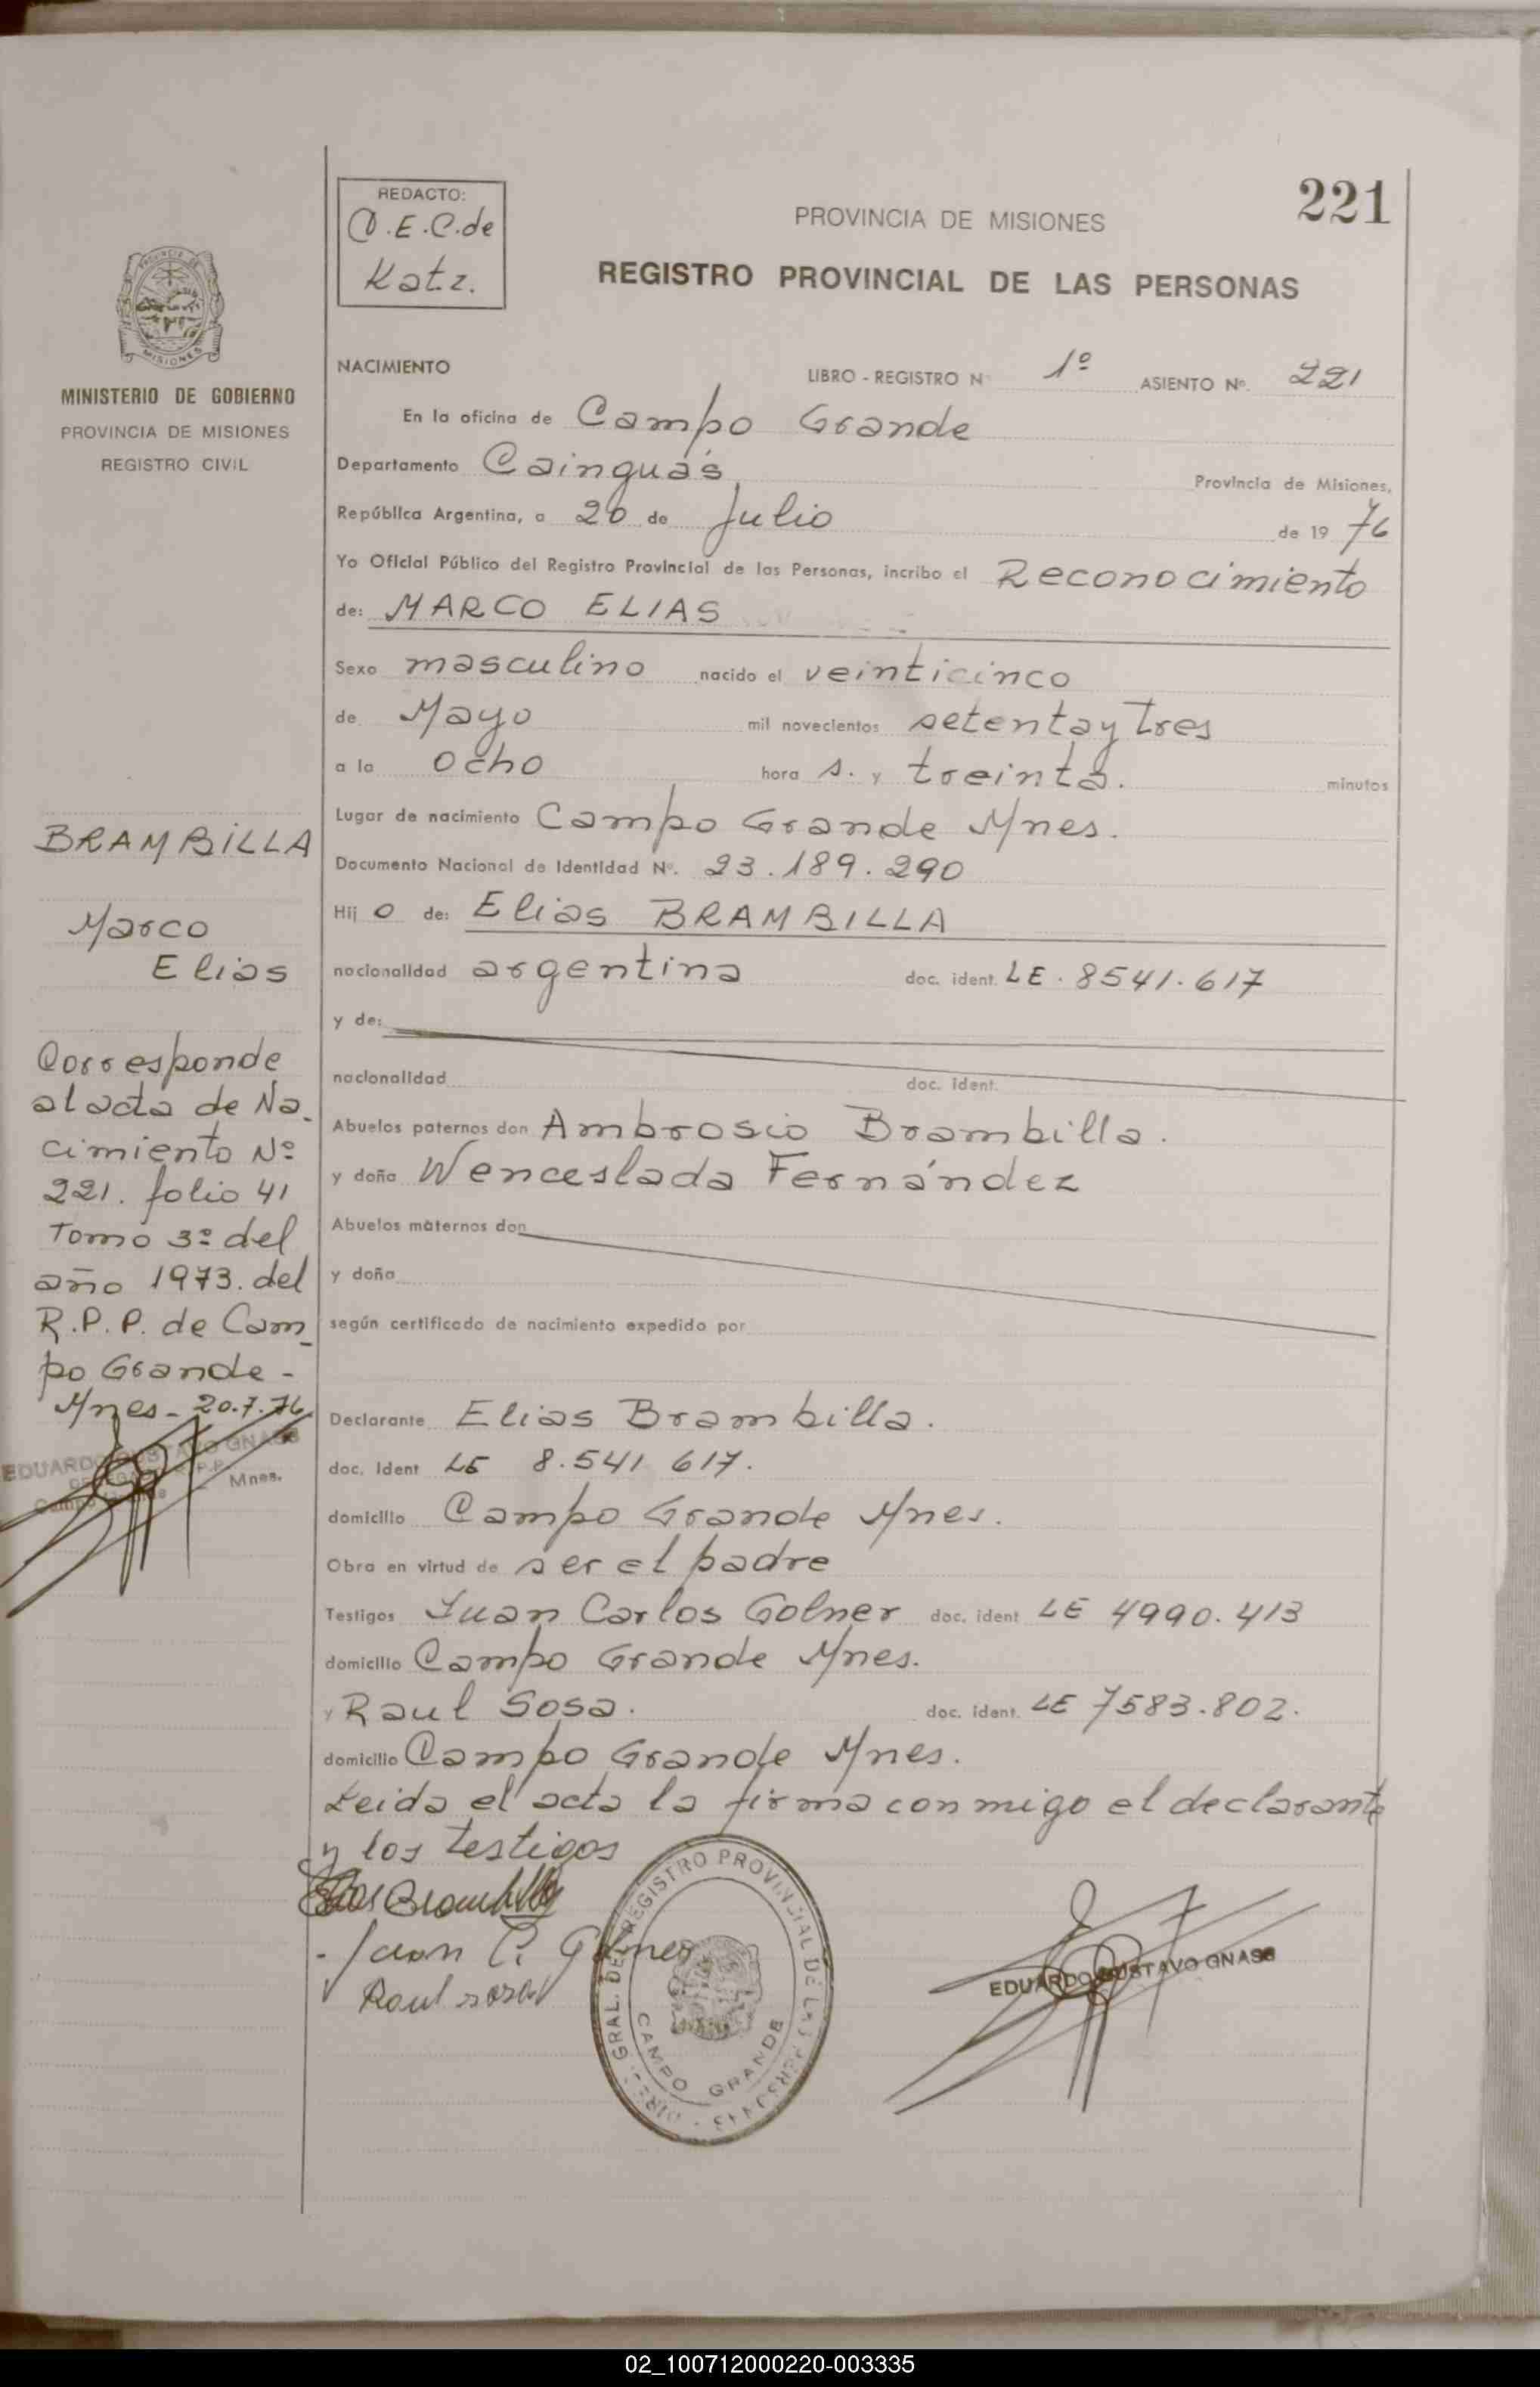 221
REDACTO:
O.E.C.de
Katz.
PROVINCIA DE MISIONES
REGISTRO PROVINCIAL DE LAS PERSONAS
MINISTERIO DE GOBIERNO
PROVINCIA DE MISIONES
REGISTRO CIVIL
NACIMIENTO
LIBRO - REGISTRO Nº 1º ASIENTO Nº. 221
En la oficina de Campo Grande
Departamento Cainguás Provincia de Misiones,
República Argentina, a 20 de Julio de 19 76
Yo Oficial Público del Registro Provincial de las Personas, incribo el Reconocimiento
de: MARCO ELIAS
Sexo masculino nacido el veinticinco
de Mayo mil novecientos setenta y tres
a la ocho hora s. y treinta. minutos
Lugar de nacimiento Campo Grande Mnes.
Documento Nacional de Identidad Nº. 23.189.290
Hij o de: Elias BRAMBILLA
nacionalidad argentina doc. ident. LE. 8541.617
y de:
nacionalidad doc. ident.
Abuelos paternos don Ambrosio Brambilla.
y doña Wenceslada Fernández
Abuelos maternos don
y doña
según certificado de nacimiento expedido por
Declarante Elias Brambilla.
doc. Ident LE 8.541 617.
domicilio Campo Grande Mnes.
Obra en virtud de ser el padre
Testigos Juan Carlos Golner doc. ident LE 4990.413
domicilio Campo Grande Mnes.
y Raul Sosa. doc. ident. LE 7583.802.
domicilio Campo Grande Mnes.
Leida el acta la firma conmigo el declarante
y los testigos
Elias Brambilla
Juan C. Golner
Raul sosa
DIREC. GRAL. DEL REGISTRO PROVINCIAL DE LAS PERSONAS
CAMPO GRANDE
EDUARDO GUSTAVO GNASS
BRAMBILLA
Marco
Elias
Corresponde
al acta de Na-
cimiento Nº
221. folio 41
Tomo 3º del
año 1973. del
R.P.P. de Cam-
po Grande -
Mnes - 20.7.76
EDUARDO GUSTAVO GNASS
Mnes.
02_100712000220-003335